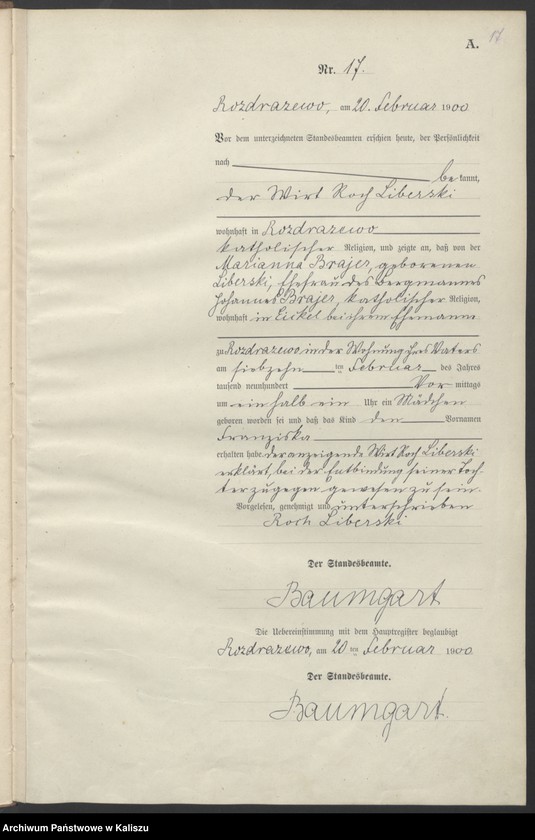 17
A.
Nr. 17.
Rozdrazewo, am 20. Februar 1900
Vor dem unterzeichneten Standesbeamten erschien heute, der Persönlichkeit
nach
bekannt,
der Wirt Roch Liberski
wohnhaft in Rozdrazewo
katholischer Religion, und zeigte an, daß von der
Marianna Brajer, geborenen
Liberski, Ehefrau des Bergmannes
Johannes Brajer, katholischer Religion,
wohnhaft in Eickel bei ihrem Ehemann
zu Rozdrazewo in der Wohnung ihres Vaters
am siebzehn ten Februar des Jahres
tausend neunhundert Vor mittags
um ein halb ein Uhr ein Mädchen
geboren worden sei und daß das Kind den Vornamen
Franziska
erhalten habe. der anzeigende Wirt Roch Liberski
erklärt, bei der Entbindung seiner Toch-
ter zugegen gewesen zu sein.
Vorgelesen, genehmigt und unterschrieben
Roch Liberski
Der Standesbeamte.
Baumgart
Die Uebereinstimmung mit dem Hauptregister beglaubigt
Rozdrazewo, am 20 ten Februar 1900
Der Standesbeamte.
Baumgart.
Archiwum Państwowe w Kaliszu